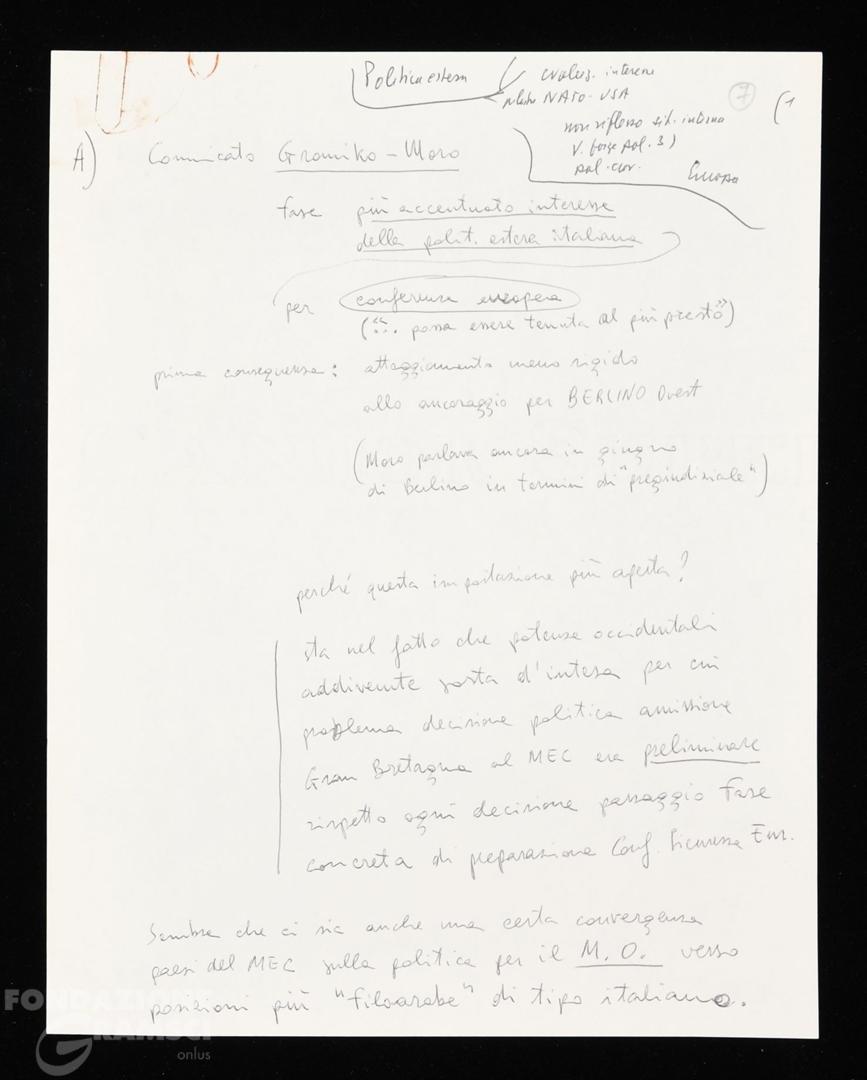 Politica estera
evoluz. interna
NATO - USA
7
(1
non riflesso sit. interna
v. forze pol. 3)
Europa
A) Comunicato Gromiko - Moro
fase più accentuato interesse
della polit. estera italiana
per conferenza europea
("... possa essere tenuta al più presto")
prima conseguenza: atteggiamento meno rigido
allo ancoraggio per BERLINO Ovest
(Moro parlava ancora in giugno
di Berlino in termini di "pregiudiziale")
perché questa impostazione più aperta?
sta nel fatto che potenze occidentali
addivenute sorta d'intesa per cui
problema decisione politica amissione
Gran Bretagna al MEC era preliminare
rispetto ogni decisione passaggio fase
concreta di preparazione Conf. Sicurezza Eur.
Sembra che ci sia anche una certa convergenza
paesi del MEC sulla politica per il M.O. verso
posizioni più "filoarabe" di tipo italiano.
FONDAZIONE
GRAMSCI
onlus